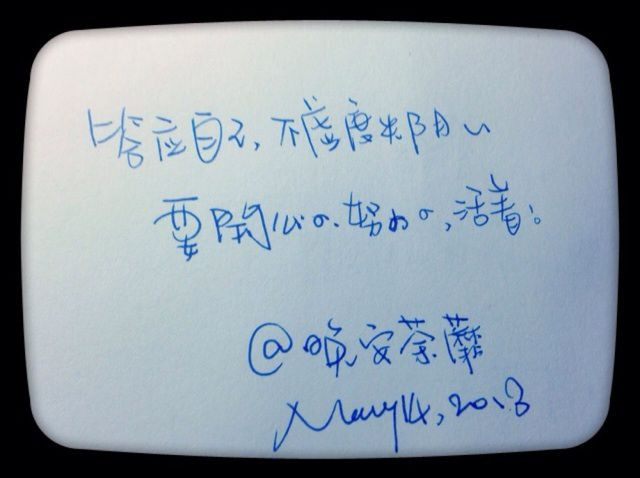 答应自己，不虚度光阴，
要开心の、努力の，活着。
@晚安荼蘼
May 14, 2013